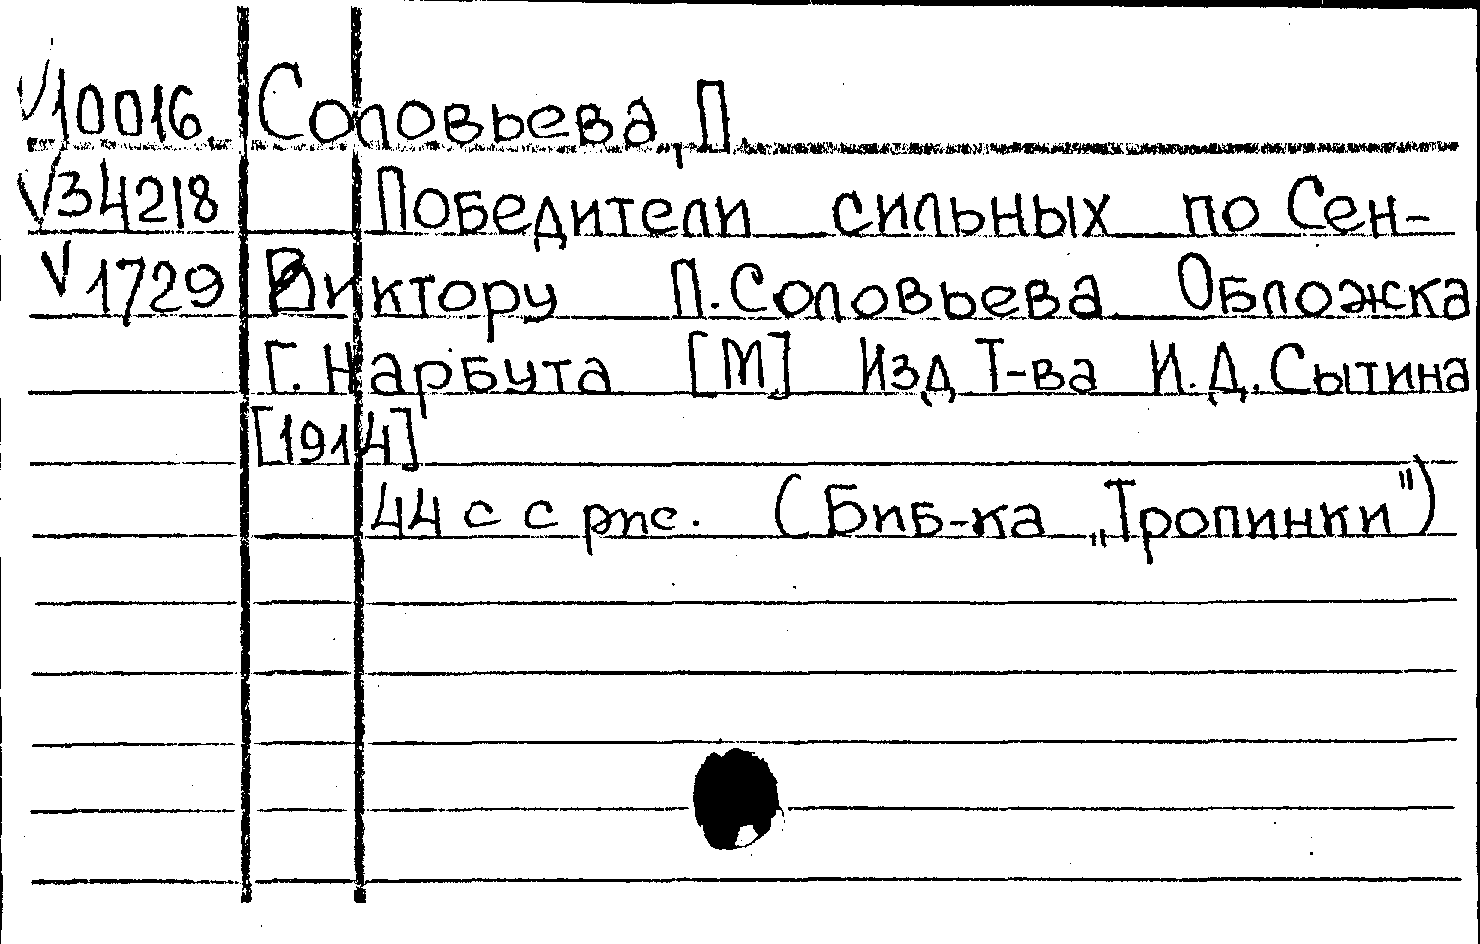 V10016 Соловьева, П.
V34218 Победители сильных по Сен-
V1729 Виктору П.Соловьева Обложка
Г. Нарбута [М] Изд Т-ва И.Д.Сытина
[1914]
44 с с рис. (Биб-ка „Тропинки")